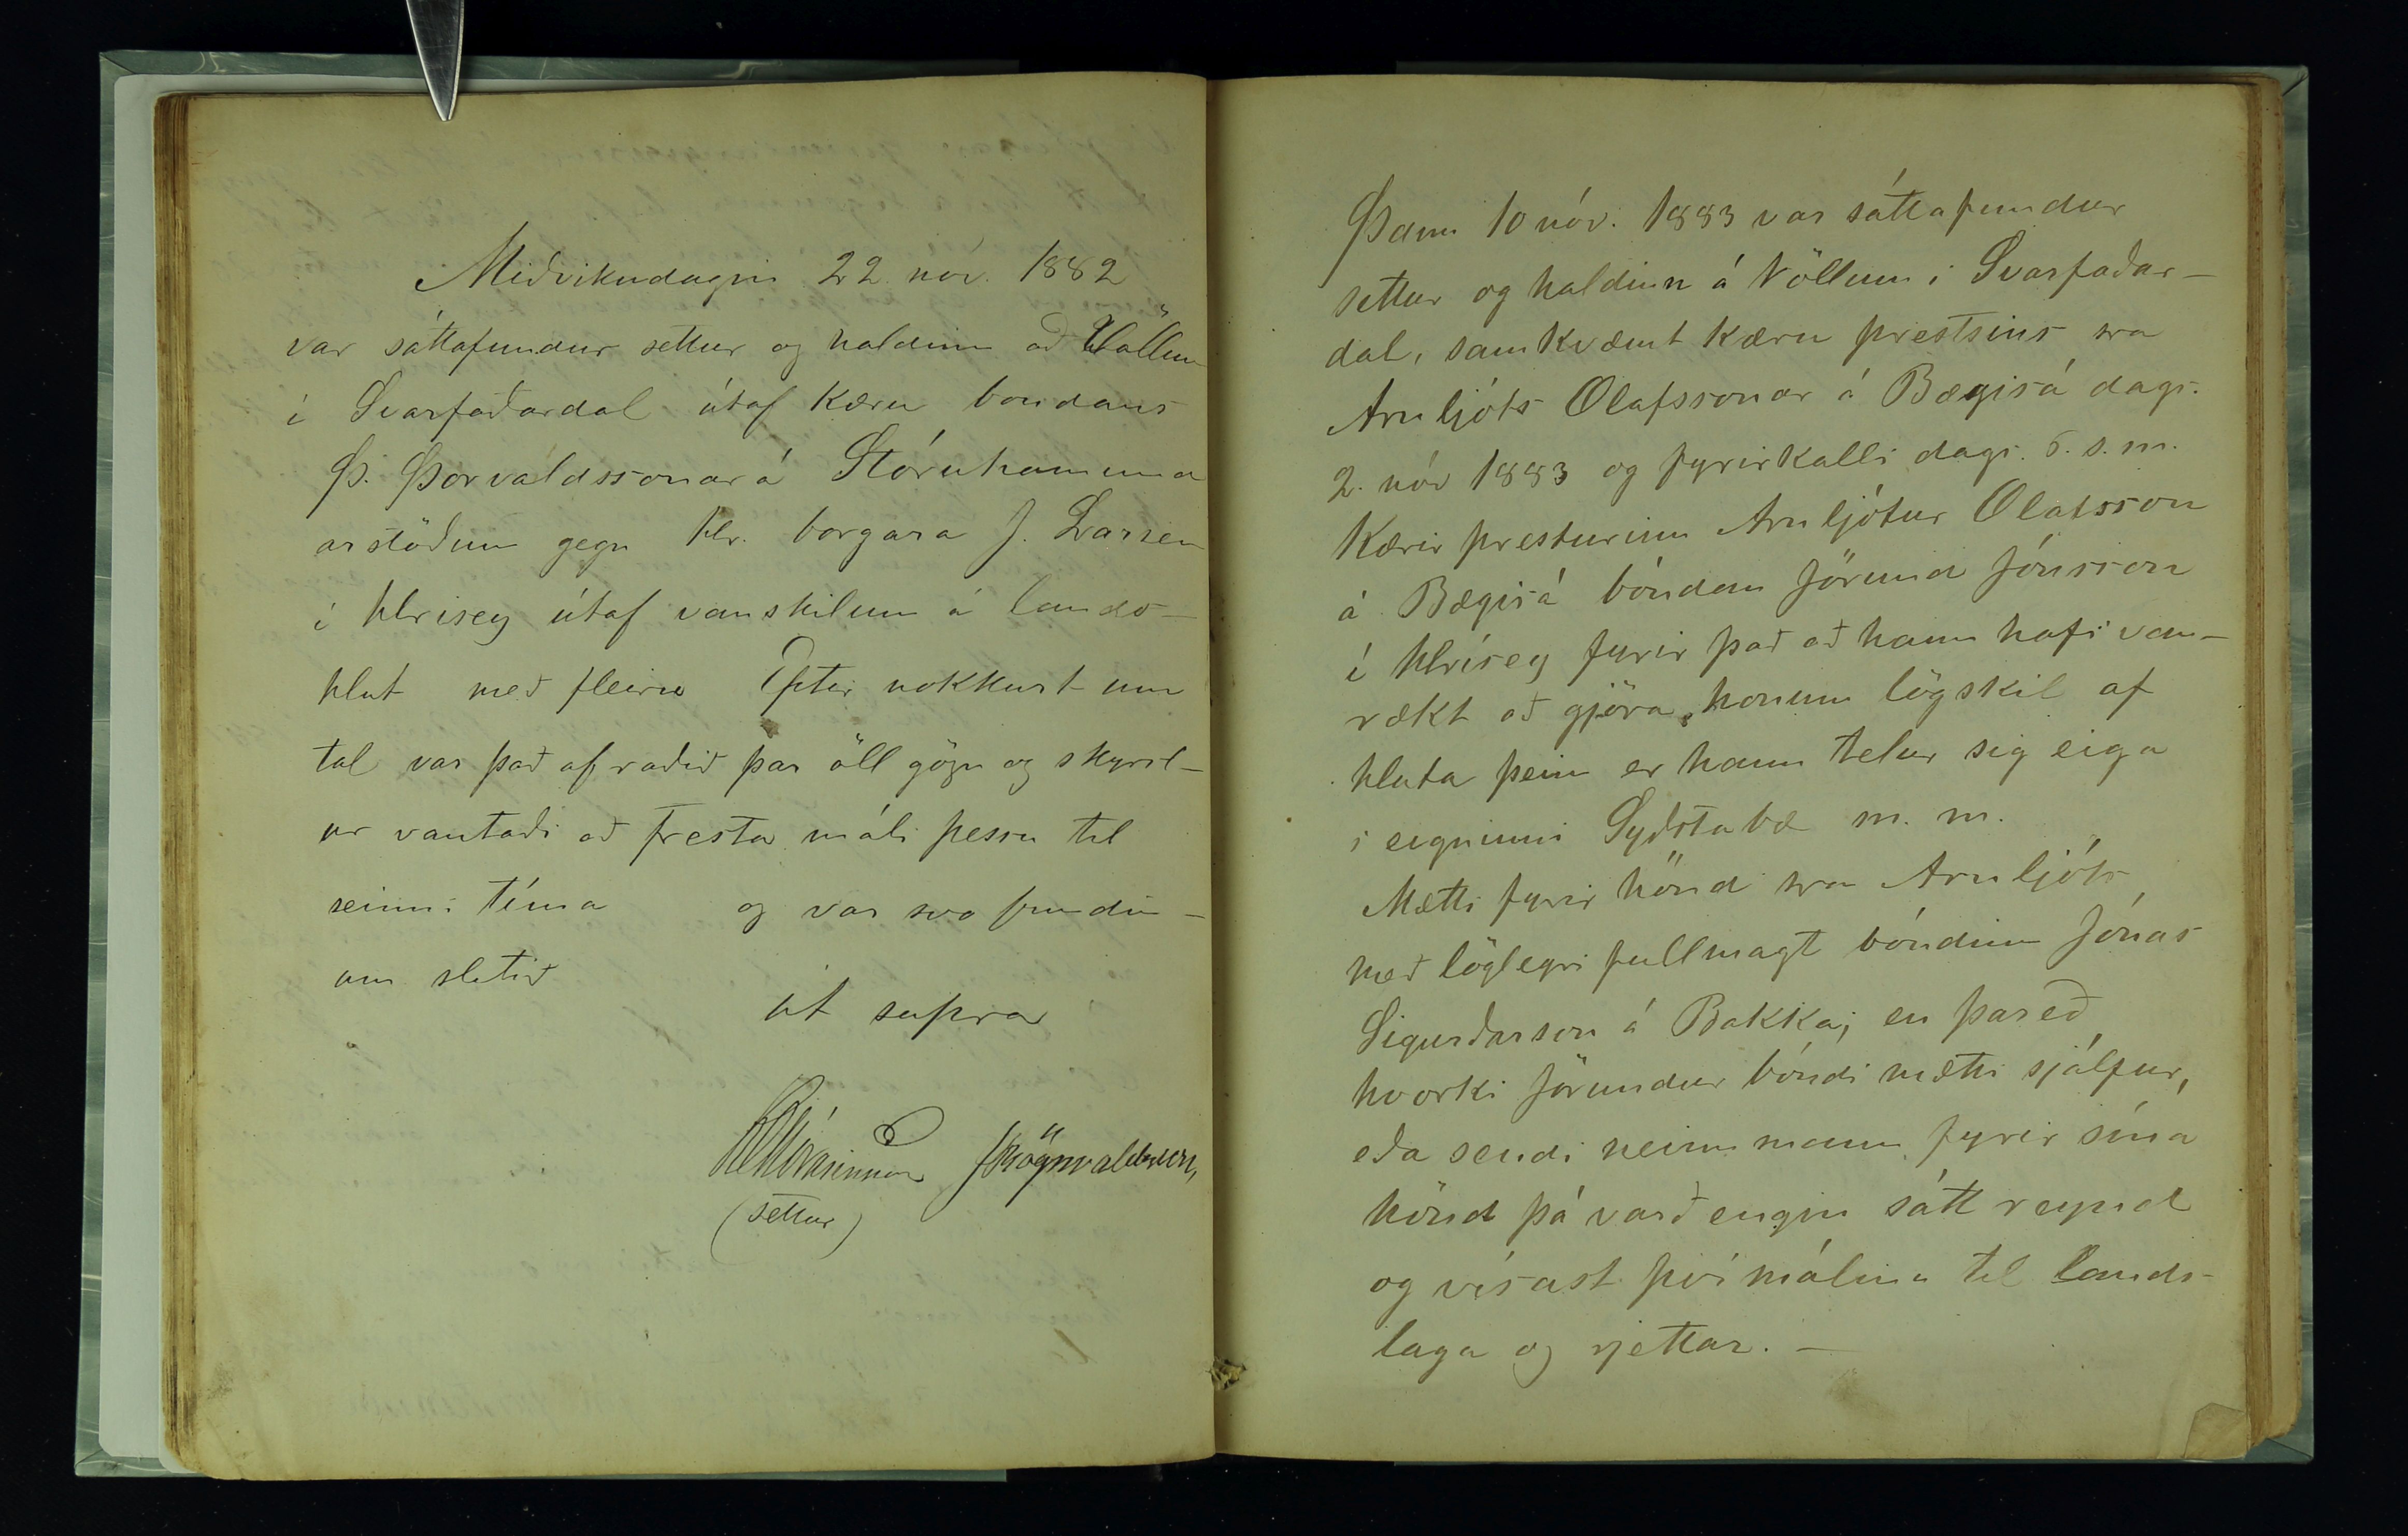 Miðvikudagin 22 nóv. 1882
var sáttafundur settur og haldinn að Völlum
í Svarfaðardal útaf kæru bondans
Þ. Þorvaldssonar á Stóruhamund
arstöðum gegn hr. borgara J. Larsen
í Hrisey útaf vanskilum á lands-
hlut með fleiru Eftir nokkurt um
tal var það af raðið þar öll gögn og skyrsl-
ur vantaði að fresta máli þessu til
seinni tíma og var svo fundin-
um slitið
ut supra
(settur)
Þann 10 nóv. 1883 var sáttafundur
settur og haldinn á Völlum i Svarfaðar-
dal, samkvæmt kæru prestsins sra
Arnljóts Olafssonar á Bægisá dags.
2. nóv 1883 og fyrirkalli dags. 5. s. m.
Kærir presturinn Arnljótur Olafsson
á Bægisá bóndan Jörund Jónsson
í Hrísey fyrir það að hann hafi van-
rækt að gjöra honum lögskil af
hluta þeim er hann telur sig eiga
i eigninni Syðstabæ m. m.
Mætti fyrir hönd sra Arnljóts
með löglegri fullmagt bóndinn Jónas
Sigurðarson á Bakka; en þareð
hvorki Jörundur bóndi mætti sjálfur,
eða sendi neinn mann fyrir sína
hönd þá varð engin sátt reynd
og vísast því málinu til lands-
laga og rjettar. -